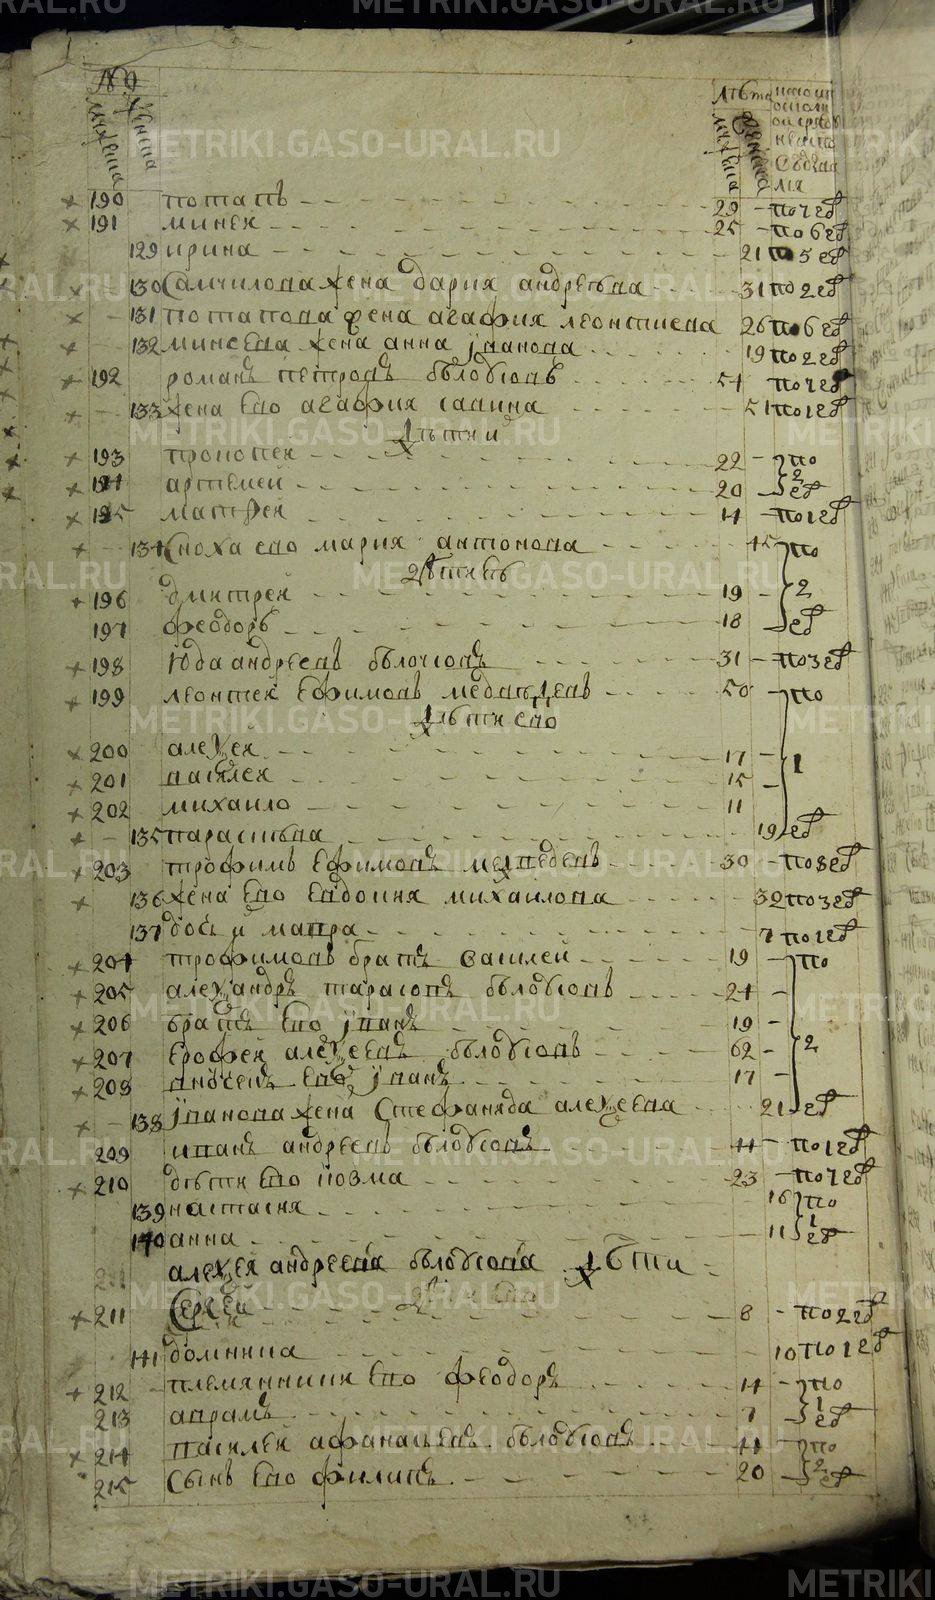 METRIKI.GASO-URAL.RU
№
мужеска женска
Лѣта
мужеска женска
190 потапъ 29 по ч еб
191 миней 25 по 6 еб
129 ирина 21 по 5 еб
130 Самуилова жена дария андреева 31 по 2 еб
131 потапова жена агафия леонтиева 26 по 6 еб
132 минеева жена анна іванова 19 по 2 еб
192 романъ петровъ бѣлоусовъ 54
133 жена ево агафия савина 51 по 1 еб
дѣти и
193 прокопей 22 по
194 артемей 20 2 еб
195 матфей 14 по 1 еб
134 Сноха ево мария антонова 45 по
дѣти еѣ
196 дмитрей 19 2
197 феодоръ 18 еб
198 юда андреевъ бѣлоусовъ 31 по 3 еб
199 леонтей ефимовъ медведевъ 50 по
дѣти ево
200 алексей 17 1
201 василей 15
202 михаило 11
135 парасковья 19 еб
203 трофимъ ефимовъ медведевъ 30 по 3 еб
136 жена ево евдокия михаилова 32 по 3 еб
137 дочь и мавра 7 по 1 еб
204 трофимовъ братъ василей 19 по
205 александръ тарасовъ бѣлоусовъ 24
206 братъ ево іванъ 19
207 ерофей алексеевъ бѣлоусовъ 62 2
208 внучекъ ево іванъ 17
138 іванова жена Стефанида алексеева 21 еб
209 иванъ андреевъ бѣлоусовъ 44 по 1 еб
210 дѣти ево козма 23 по ч еб
139 настасия 16 по
140 анна 11 1 еб
алексея андреева бѣлоусова дѣти
211 Сергей 8 по 2 еб
141 домника 10 по 1 еб
212 племянники ево феодоръ 14 по
213 аврамъ 7 1 еб
214 василей афанасьевъ бѣлоусовъ 44 по
215 Сынъ ево филипъ 20 2 еб